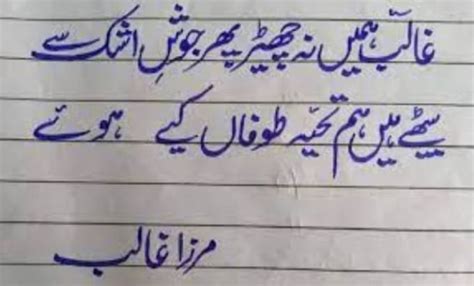 غالبؔ ہمیں نہ چھیڑ پھر جوشِ اشک سے
بیٹھے ہیں ہم تحیّہ طوفاں کیے ہوئے
مرزا غالب